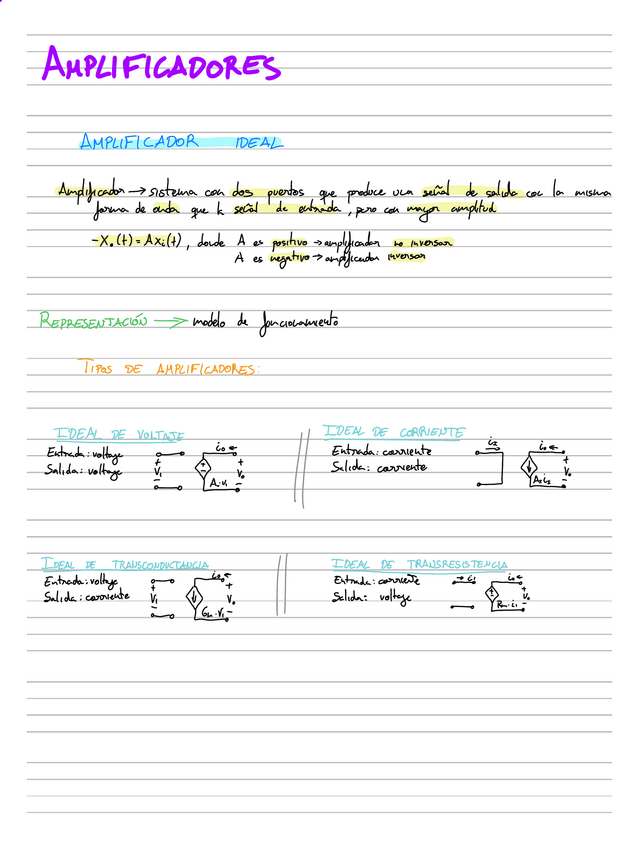 AMPLIFICADORES
AMPLIFICADOR IDEAL
Amplificador → sistema con dos puertos que produce una señal de salida con la misma
forma de onda que la señal de entrada, pero con mayor amplitud
- Xo(t) = A xi(t), donde A es positivo → amplificador no inversor
A es negativo → amplificador inversor
REPRESENTACIÓN → modelo de funcionamiento
TIPOS DE AMPLIFICADORES:
IDEAL DE VOLTAJE
Entrada: voltage
Salida: voltage
+ V1 -
io ←
+ -
A·v1
+ Vo -
IDEAL DE CORRIENTE
Entrada: corriente
Salida: corriente
io ←
+ Vo -
IDEAL DE TRANSCONDUCTANCIA
Entrada: voltage
Salida: corriente
+ V1 -
io ←
Gm·V1
+ Vo -
IDEAL DE TRANSRESISTENCIA
Entrada: corriente
Salida: voltage
→ i1
io ←
Rm·i1
+ Vo -